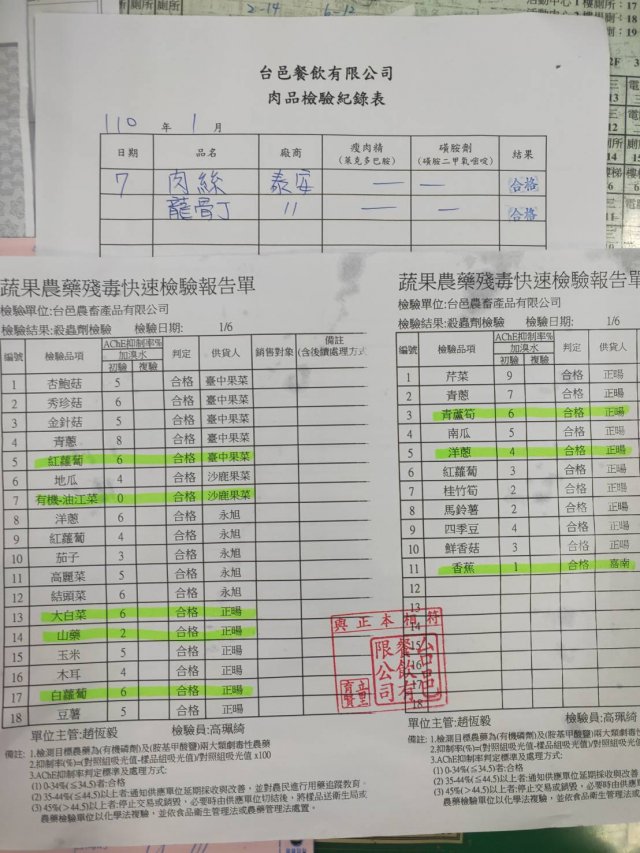 台邑餐飲有限公司
肉品檢驗紀錄表
110 年 1 月
日期 品名 廠商 瘦肉精(萊克多巴胺) 磺胺劑(磺胺二甲氧嘧啶) 結果
7 肉絲 泰安 — — 合格
龍骨丁 〃 — — 合格
蔬果農藥殘毒快速檢驗報告單
檢驗單位:台邑農畜產品有限公司
檢驗結果:殺蟲劑檢驗 檢驗日期: 1/6
編號 檢驗品項 AChE抑制率% 加溴水 初驗 複驗 判定 供貨人 銷售對象 備註(含後續處理方式
1 杏鮑菇 5 合格 臺中果菜
2 秀珍菇 6 合格 臺中果菜
3 金針菇 5 合格 臺中果菜
4 青蔥 8 合格 臺中果菜
5 紅蘿蔔 6 合格 臺中果菜
6 地瓜 4 合格 沙鹿果菜
7 有機-油江菜 0 合格 沙鹿果菜
8 洋蔥 6 合格 永旭
9 紅蘿蔔 4 合格 永旭
10 茄子 3 合格 永旭
11 高麗菜 5 合格 永旭
12 結頭菜 6 合格 永旭
13 大白菜 6 合格 正暘
14 山藥 2 合格 正暘
15 玉米 5 合格 正暘
16 木耳 4 合格 正暘
17 白蘿蔔 6 合格 正暘
18 豆薯 5 合格 正暘
單位主管:趙恆毅 檢驗員:高珮綺
備註: 1.檢測目標農藥為(有機磷劑)及(胺基甲酸鹽)兩大類劇毒性農藥
2.抑制率(%)=(對照組吸光值-樣品組吸光值)/對照組吸光值 x100
3.AChE抑制率判定標準及處理方式:
(1) 0-34%(≤34.5)者:合格
(2) 35-44%(≤44.5)以上者:通知供應單位延期採收與改善，並對農民進行用藥追蹤教育.
(3) 45%(>44.5)以上者:停止交易或銷毀，必要時由供應單位切結後，將樣品送衛生局或
農藥檢驗單位以化學法複驗，並依食品衛生管理法或農藥管理法處置。
蔬果農藥殘毒快速檢驗報告單
檢驗單位:台邑農畜產品有限公司
檢驗結果:殺蟲劑檢驗 檢驗日期: 1/6
編號 檢驗品項 AChE抑制率% 加溴水 初驗 複驗 判定 供貨人
1 芹菜 9 合格 正暘
2 青蔥 7 合格 正暘
3 青蘆筍 6 合格 正暘
4 南瓜 5 合格 正暘
5 洋蔥 4 合格 正暘
6 紅蘿蔔 3 合格 正暘
7 桂竹筍 2 合格 正暘
8 馬鈴薯 2 合格 正暘
9 四季豆 2 合格 正暘
10 鮮香菇 3 合格 正暘
11 香蕉 1 合格 嘉南
12
13
14
15
16
17
18
與正本相符
單位主管:趙恆毅 檢驗員:高珮綺
備註: 1.檢測目標農藥為(有機磷劑)及(胺基甲酸鹽)兩大類劇毒
2.抑制率(%)=(對照組吸光值-樣品組吸光值)/對照組吸
3.AChE抑制率判定標準及處理方式:
(1) 0-34%(≤34.5)者:合格
(2) 35-44%(≤44.5)以上者:通知供應單位延期採收與改善
(3) 45%(>44.5)以上者:停止交易或銷毀，必要時由供應
農藥檢驗單位以化學法複驗，並依食品衛生管理法